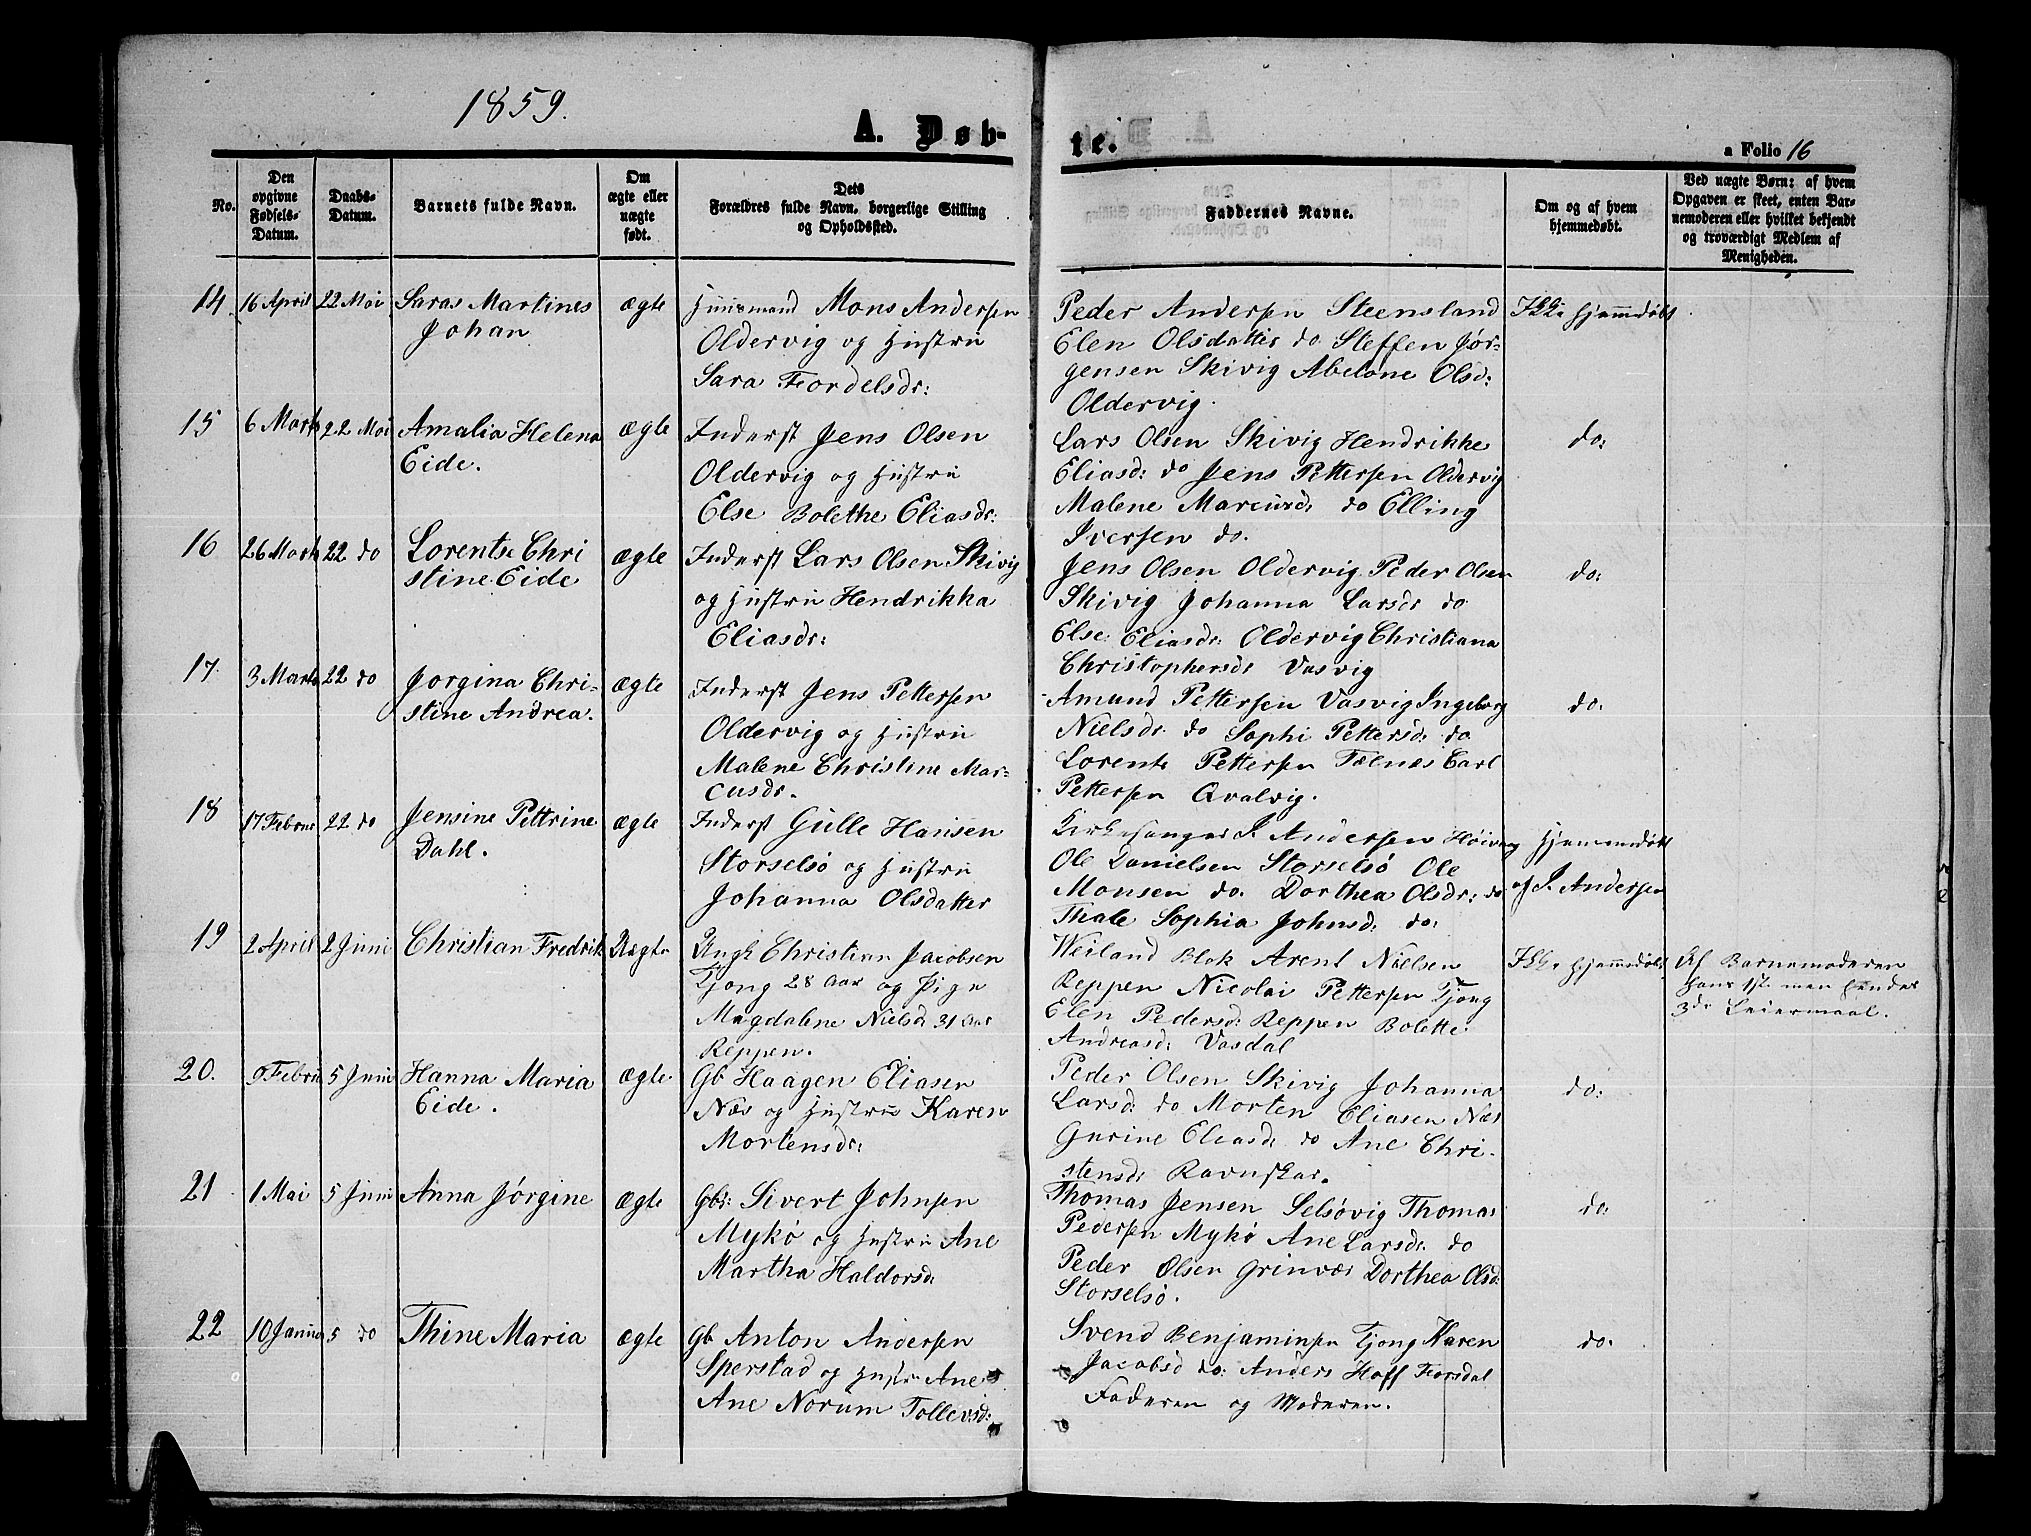 1859.
A. Døb-
te.
a Folio 16
No.
Den
opgivne
Fødsels-
Datum.
Daabs-
Datum.
Barnets fulde Navn.
Om
ægte eller
uægte
født.
Dets
Forældres fulde Navn, borgerlige Stilling
og Opholdssted.
Faddernes Navne.
Om og af hvem
hjemmedøbt.
Ved uægte Børn: af hvem
Opgaven er skeet, enten Bar-
nemoderen eller hvilket bekjendt
og troværdigt Medlem af
Menigheden.
14. 16 April 22 Mai Saras Martines
Johan
ægte
Huusmand Mons Andersen
Oldervig og Hustru
Sara Fordelsdr:
Peder Andersen Steensland
Elen Olsdatter do Steffen Jør-
gensen Skivig Abelone Olsd:
Oldervig.
Ikke hjemmdøbt
15 6 Marts 22 Mai Amalia Helena
Eide.
ægte
Inderst Jens Olsen
Oldervig og Hustru
Else Bolethe Eliasdr:
Lars Olsen Skivig Hendrikke
Eliasd: do Jens Pettersen Oldervig
Malene Marcusd: do Elling
Iversen do.
do:
16 26 Marts 22 do Lorentse Chri
stine Eide
ægte
Inderst Lars Olsen Skivig
og Hustru Hendrikka
Eliasdr:
Jens Olsen Oldervig Peder Olsen
Skivig Johanna Larsdr do
Else Eliasdr: Oldervig Christiana
Christophersdr Vasvig
do:
17. 3 Marts 22 do Jorgina Chri-
stine Andrea.
ægte
Inderst Jens Pettersen
Oldervig og Hustru
Malene Christine Mar-
cusdr.
Amund Pettersen Vasvig Ingeborg
Nielsdr. do Sophi Pettersd: do
Lorents Pettersen Telnes Carl
Pettersen Qvalvig.
do:
18 17 Februar 22 do Jensine Pettrine
Dahl.
ægte
Inderst Gulle Hansen
Storselsø og Hustru
Johanna Olsdatter
Kirkesanger J. Andersen
Ole Danielsen Storselsø Ole
Monsen do. Dorthea Olsdr: do
Thale Sophia Johnsd: do:
Hjemmedøbt
af J. Andersen
19 2 April 2 Juni Christian Fredrik Uægte
Ungk Christian Jacobsen
Tjong 28 Aar og Pige
Magdalene Nielsd 31 Aar
Reppen.
Weiland Blok Arent Nielsen
Reppen Nicolai Pettersen Tjong
Elen Pedersd: Reppen Bolette
Andreasd: Vasdal
Ikke hjemmedøbt
Af Barnemoderen
Hans 1ste men Hendes
3de Leiermaal.
20. 9 Febru 5 Juni Hanna Maria
Eide.
ægte.
Gb Haagen Eliasen
Næs og Hustru Karen
Mortensdr:
Peder Olsen Skivig Johanna
Larsd: do Morten Eliasen Næs
Gurine Eliasd: do Ane Chri-
stensd: Ravnskar.
do:
21 1 Mai 5 Juni Anna Jørgine
ægte
Gbr: Sivert Johnsen
Mykø og Hustru Ane
Martha Haldorsd:
Thomas Jensen Selsøvig Thomas
Pedersen Mykø Ane Larsdr: do
Peder Olsen Grinvær Dorthea Olsd:
Storselsø.
do:
22 10 Januar 5 do Thine Maria
ægte
Gb Anton Andersen
Sperstad og Hustr. Ane
Ane Norum Tollevsd:
Svend Benjaminsen Tjong Karen
Jacobsd do: Anders Hoff Forsdal
Faderen og Moderen.
do: